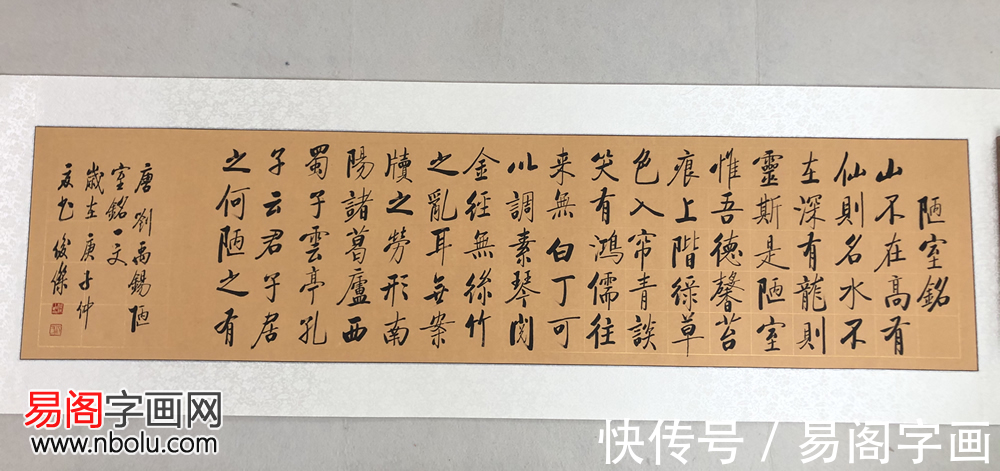 陋室銘
山不在高有
仙則名水不
在深有龍則
靈斯是陋室
惟吾德馨苔
痕上階绿草
色入帘青談
笑有鴻儒往
来無白丁可
以調素琴閱
金經無絲竹
之亂耳無案
牘之勞形南
陽諸葛廬西
蜀子雲亭孔
子云君子居
之何陋之有
唐劉禹錫陋
室銘一文
歲在庚子仲
夏書俊傑
易阁字画网
www.nbolu.com
快传号 / 易阁字画